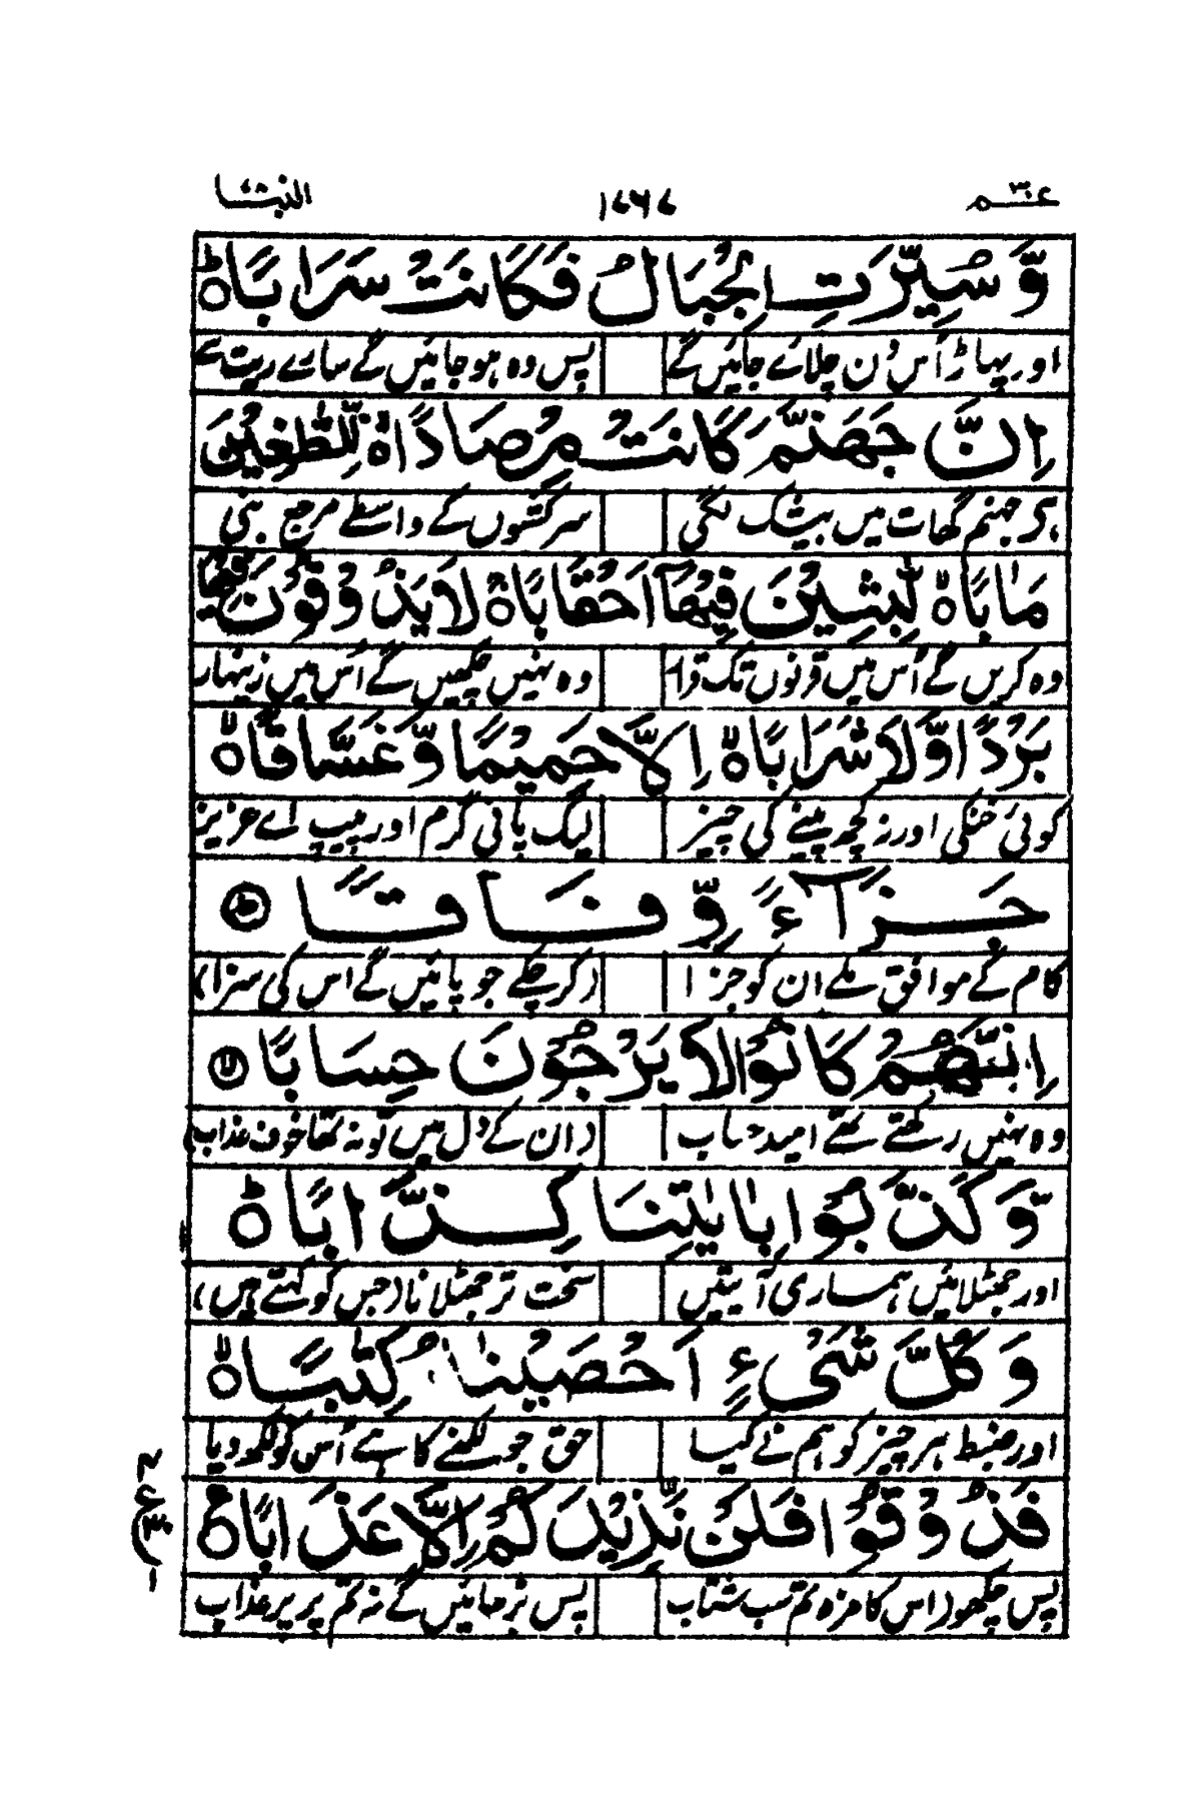 عم ۳۰ ۱۷۶۷ النبا ۷۸
وَّسُيِّرَتِ الْجِبَالُ فَكَانَتْ سَرَابًا ۝ؕ
اور پہاڑ اُس دن چلائے جائیں گے پس وہ ہو جائیں گے سارے ریت سے
اِنَّ جَهَنَّمَ كَانَتْ مِرْصَادًا ۝ لِّلطّٰغِيْنَ
ہر جہنم گھات میں بیشک لگی سرکشوں کے واسطے مرجع بنی
مَاٰبًا ۝ لّٰبِثِيْنَ فِيْهَاۤ اَحْقَابًا ۝ لَا يَذُوْقُوْنَ فِيْهَا
وہ کریں گے اُس میں قرنوں تک قرار وہ نہیں چکھیں گے اُس میں زینہار
بَرْدًا وَّلَا شَرَابًا ۝ اِلَّا حَمِيْمًا وَّغَسَّاقًا ۝
کوئی خنکی اور نہ کچھ پینے کی چیز لیک پانی گرم اور پیپ اے عزیز
جَزَآءً وِّفَاقًا ۝ؕ
کام کے موافق ملے ان کو جزا (کر چکے جو پائیں گے اس کی سزا)
اِنَّهُمْ كَانُوْا لَا يَرْجُوْنَ حِسَابًا ۝ۙ
وہ نہیں رکھتے تھے امید حساب (ان کے دل میں تو نہ تھا خوف عذاب)
وَّكَذَّبُوْا بِاٰيٰتِنَا كِذَّابًا ۝ؕ
اور جھٹلائیں ہماری آیتیں سخت تر جھٹلانا (جس کو کہتے ہیں)
وَكُلَّ شَيْءٍ اَحْصَيْنٰهُ كِتٰبًا ۝ۙ
اور ضبط ہر چیز کو ہم نے کیا حق جو لکھنے کا ہے اُس کو لکھ دیا
فَذُوْقُوْا فَلَنْ نَّزِيْدَكُمْ اِلَّا عَذَابًا ۝
پس چکھو (اس کا مزہ تم سب شتاب پس بڑھائیں گے نہ تم پر پر عذاب